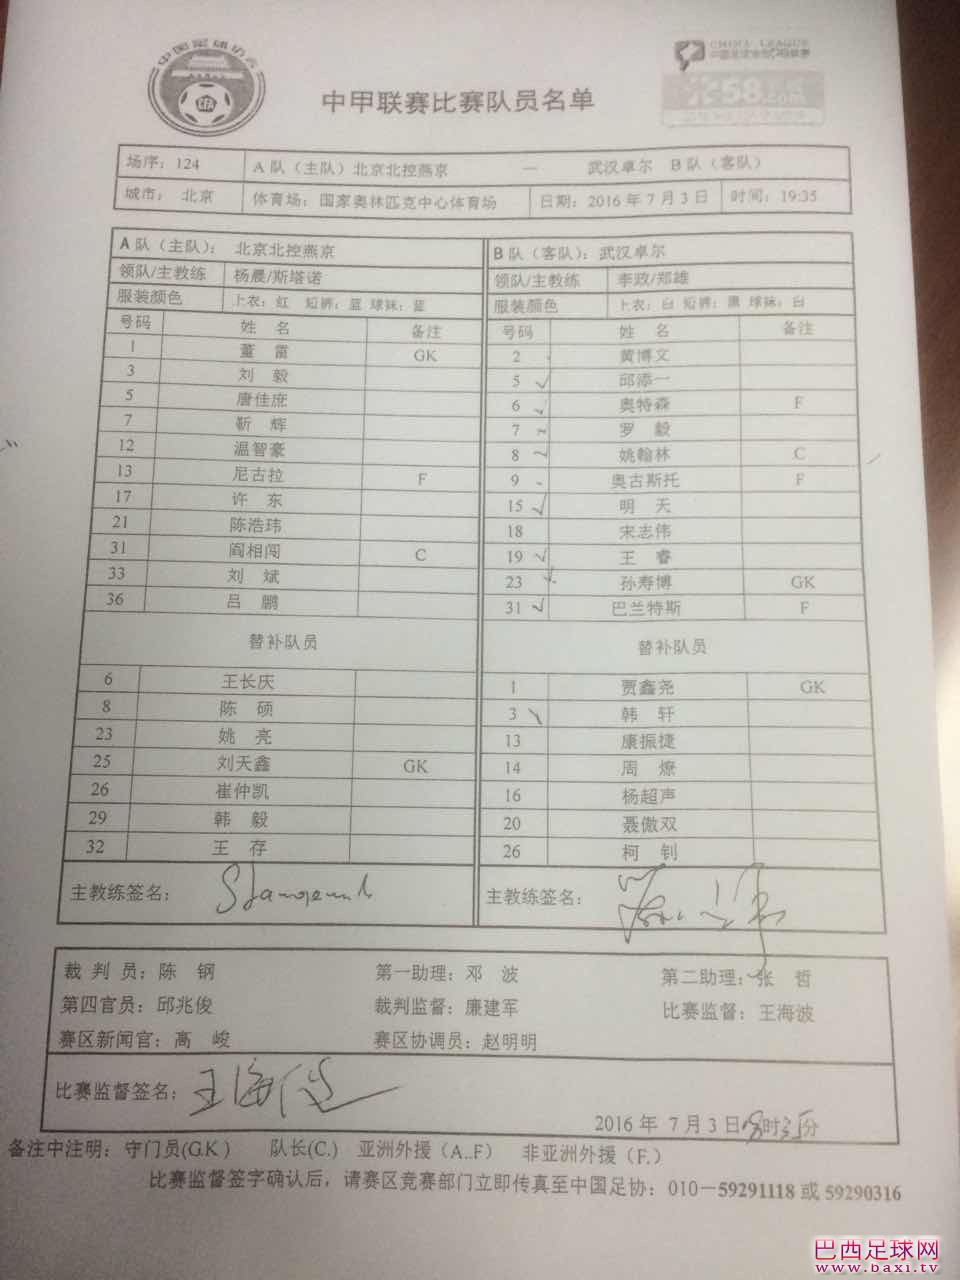 中国足球协会
CHINA LEAGUE
58.com
中甲联赛比赛队员名单
场序：124 A 队（主队）北京北控燕京 — 武汉卓尔 B 队（客队）
城市： 北京 体育场：国家奥林匹克中心体育场 日期：2016 年 7 月 3 日 时间：19:35
A 队（主队）： 北京北控燕京
领队/主教练 杨晨/斯塔诺
服装颜色 上衣：红 短裤：蓝 球袜：蓝
号码 姓 名 备注
1 董 雷 GK
3 刘 毅
5 唐佳庶
7 靳 辉
12 温智豪
13 尼古拉 F
17 许 东
21 陈浩玮
31 阎相闯 C
33 刘 斌
36 吕 鹏
替补队员
6 王长庆
8 陈 硕
23 姚 亮
25 刘天鑫 GK
26 崔仲凯
29 韩 毅
32 王 存
主教练签名：
B 队（客队）：武汉卓尔
领队/主教练 李政/郑雄
服装颜色 上衣：白 短裤：黑 球袜：白
号码 姓 名 备注
2 黄博文
5 邱添一
6 奥特森 F
7 罗 毅
8 姚翰林 C
9 奥古斯托 F
15 明 天
18 宋志伟
19 王 睿
23 孙寿博 GK
31 巴兰特斯 F
替补队员
1 贾鑫尧 GK
3 韩 轩
13 康振捷
14 周 燎
16 杨超声
20 聂傲双
26 柯 钊
主教练签名：
裁 判 员：陈 钢 第一助理：邓 波 第二助理：张 哲
第四官员：邱兆俊 裁判监督：廉建军 比赛监督：王海波
赛区新闻官：高 峻 赛区协调员：赵明明
比赛监督签名：王海波
2016 年 7 月 3 日 时 分
备注中注明：守门员(GK ) 队长(C.) 亚洲外援（A..F） 非亚洲外援（F.）
比赛监督签字确认后，请赛区竞赛部门立即传真至中国足协：010－59291118 或 59290316
巴西足球网
www.baxi.tv